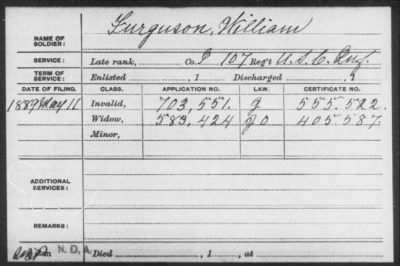 NAME OF SOLDIER: Furguson, William
SERVICE: Late rank, Co. I 107 Reg't U.S.C. Inf.
TERM OF SERVICE: Enlisted , 1 Discharged , 1
DATE OF FILING. CLASS. APPLICATION NO. LAW. CERTIFICATE NO.
1889 May 11 Invalid, 703,551. G 555.522.
Widow, 583,424 405.587.
Minor,
ADDITIONAL SERVICES:
REMARKS:
N.D.A. Died , 1 , at